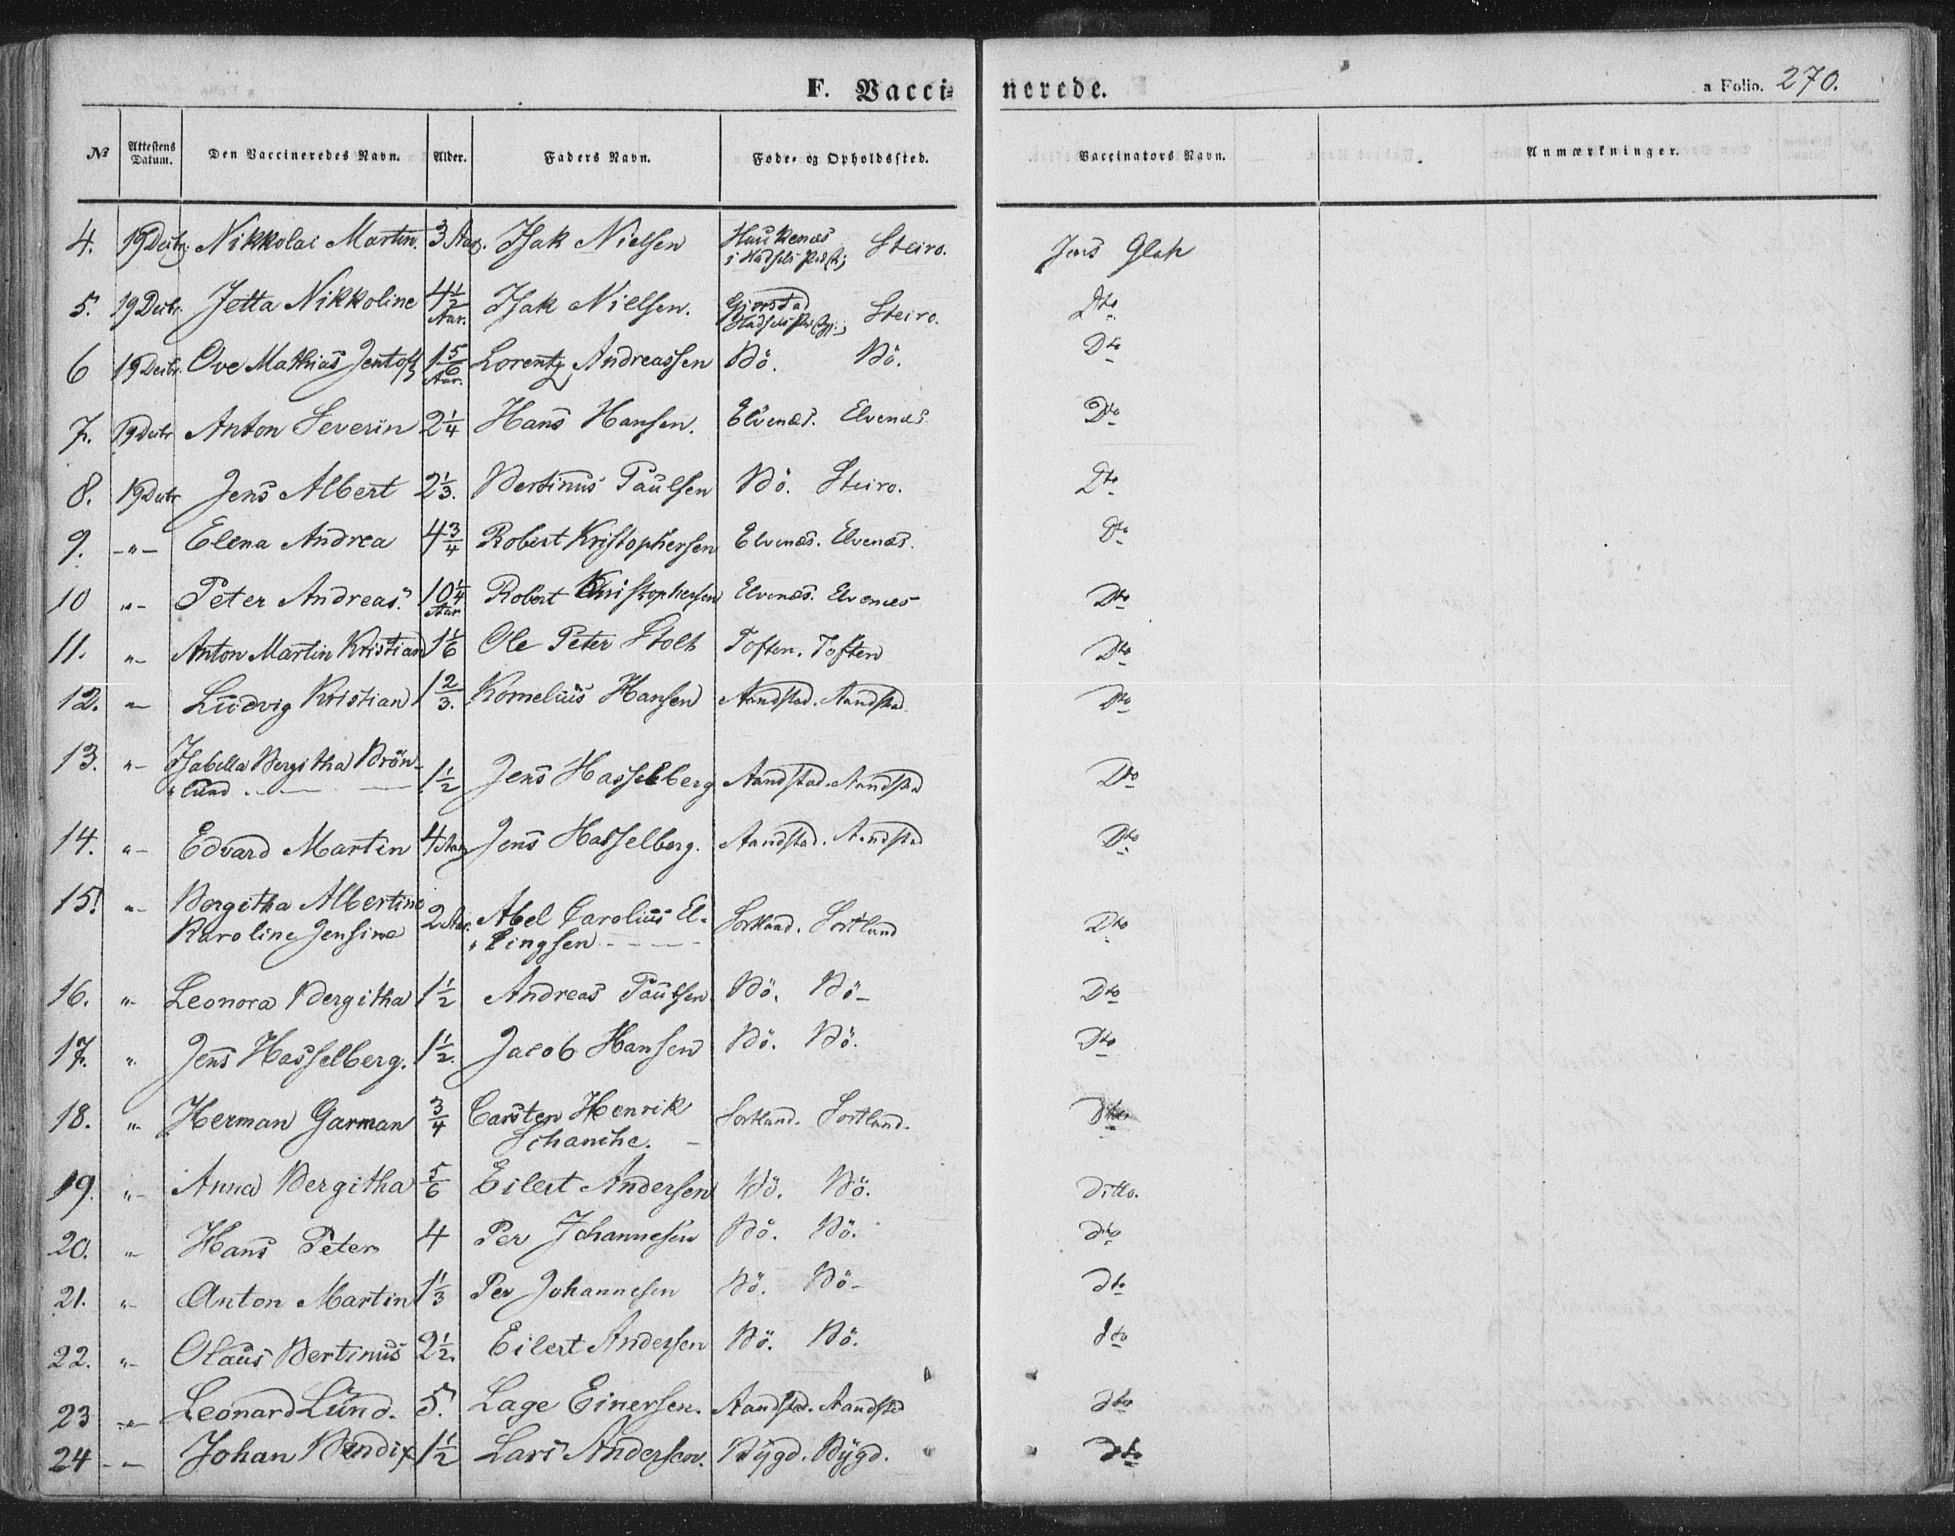 F. Vaccinerede. a Folio. 270.
№ Attestens Datum. Den Vaccineredes Navn. Alder. Faders Navn. Føde- og Opholdssted. Vaccinators Navn. Anmærkninger.
4. 19 Decbr. Nikkolai Martin. 3 Aar. Isak Nielsen Haukenæs i Hadsels Steiro. Jens
5. 19 Decbr. Jetta Nikkoline 4½ Aar. Isak Nielsen. Steiro. Dto
6 19 Decbr. Ove Mathias Jentoft 1 5/6 Aar. Lorentz Andreassen Bö. Bö. Dto
7. 19 Decbr Anton Severin 2¼ Hans Hansen. Elvenæs. Elvenæs Dto
8. 19 Decbr Jens Albert 2⅓. Bertinus Paulsen Bö. Steiro. Dto
9. -"- Elena Andrea 4¾ Robert Kristophersen Elvenæs. Elvenæs. Do
10 "- Peter Andreas. 10¼ Aar Robert Christophersen Elvenæs. Elvenæs Dto
11. "- Anton Martin Kristian 1 1/6 Ole Peter Stolt Toften. Toften Dto
12. "- Ludvig Kristian 1⅔. Kornelius Hansen Aandstad. Aandstad Dto
13. "- Isabella Bergitha Brön-
"lund. 1½ Jens Hasselberg Aandstad. Aandstad Dto
14. "- Edvard Martin 4 Aar Jens Hasselberg. Aandstad. Aandstad Dto
15. "- Bergitha Albertine
Karoline Jensine 2 Aar. Abel Carolius El-
"lingsen Sortland. Sortland Dto
16. "- Leonora Bergitha 1½ Andreas Paulsen Bö. Bö- Dto
17. ". Jens Hasselberg. 1½. Jacob Hansen Bö. Bö. Dto
18. ". Herman Garman ¾ Carsten Henrik
Schanche. Sortland. Sortland. Dto
19. "- Anna Bergitha 5/6 Eilert Andersen Bö. Bö. ditto.
20. "- Hans Peter 4 Per Johannesen Bö. Bö. dto
21. "- Anton Martin 1⅓ Per Johannesen Bö. Bö- dto
22. "- Olaus Bertinus 2½. Eilert Andersen Bö. Bö. dto
23 -"- Leonard Lund. 5. Lage Einersen. Aandstad. Aandstad dto
24 - - Johan Bendix 1½ Lars Andersen. Bÿgd. Bÿgd. dto